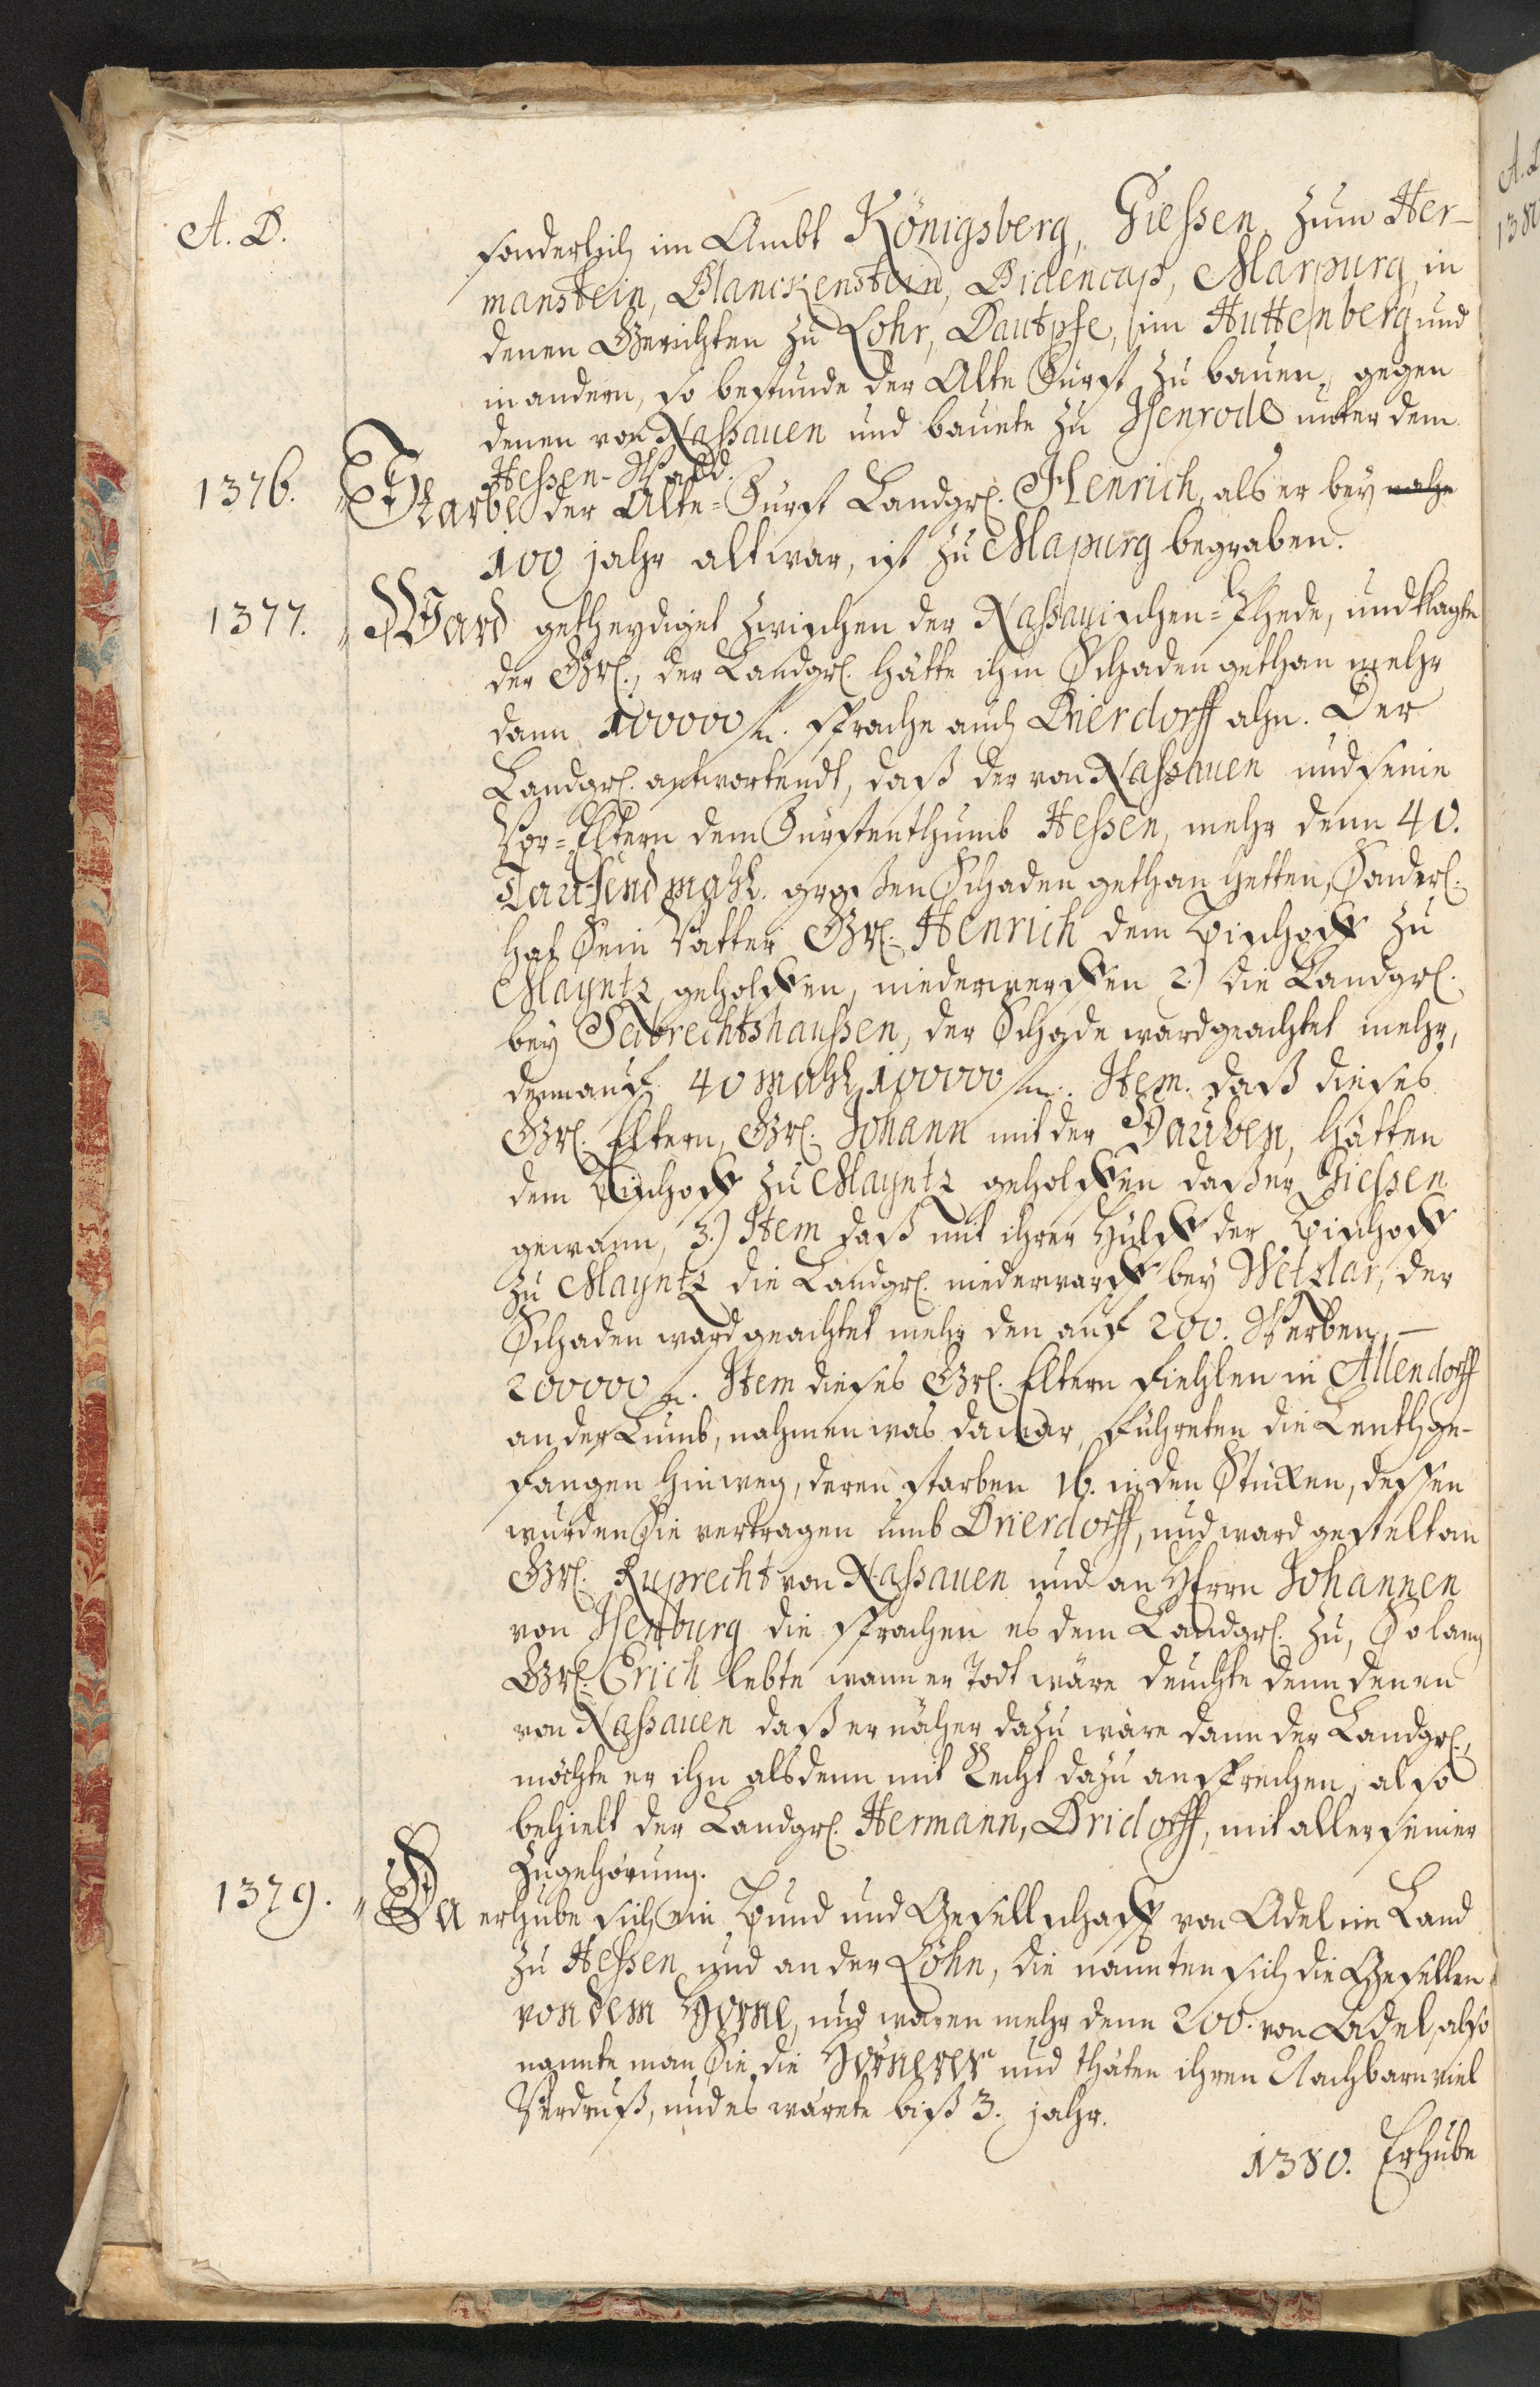 A. D.
sonderlich im Ambt Königsberg, Giessen, zum Her-
manstein, Blanckenstein, Bidencap, Marpurg, in
denen Gerichten zu Lohr, Dautphe, im Huttenberg und
in andern, so bestunde der Alte Fürst zu bauen, gegen
denen von Nassauen und bauete zu Isenrode unter dem
Hessen-Wald.
1376. Starbe der Alte-Fürst Landgr. Henrich, als er bey nahe
100 jahr alt war, ist zu Mapurg begraben.
1377. Ward getheydiget zwischen der Nassauischen-Fhede, und klagte
der Gr., der Landgr. hätte ihm Schaden gethan mehr
dann 100000 fl. sprache auch Drierdorff ahn. Der
Landgr. antwortendt, daß der von Nassauen und seine
Vor-Eltern dem Fürstenthumb Hessen, mehr denn 40.
Tausend mahl. großen Schaden gethan hetten, Sonderl.
hat Sein Vatter Gr. Henrich dem Bischoff zu
Mayntz geholffen, niederwerffen 2.) die Landgr.
bey Seibrechtshaussen, der Schade ward geachtet mehr,
denn auf 40 mahl 100000 fl. Item. daß dieses
Gr. Eltern, Gr. Johann mit der Hauben, hätten
dem Bischoff zu Mayntz geholffen daß er Giessen
gewann, 3.) Item daß mit ihrer Hülff der Bischoff
zu Mayntz die Landgr. niederwarff bey Wetzlar, der
Schaden ward geachtet mehr den auf 200. Werben, —
200000 fl. Item dieses Gr. Eltern fiehlen in Allendorff
an der Lumb, nahmen was da war, führeten die Leuth ge-
fangen hinweg, deren starben 16. in den Stücken, dessen
wurden Sie vertragen umb Drierdorff, und ward gestelt an
Gr. Ruprecht von Nassauen und an Herrn Johannen
von Isenburg die sprachen es dem Landgr. zu, So lang
Gr. Erich lebte wann er Todt wäre deuchte denn denen
von Nassauen daß er näher dazu wäre dann der Landgr.,
möchte er ihn alsdenn mit Recht dazu ansprechen, also
behielt der Landgr. Hermann, Dridorff, mit aller seiner
Zugehörung.
1379. Da erhube sich ein Bund und Gesellschafft von Adel im Land
zu Hessen und an der Löhn, die nannten sich die Gesellen
von dem Horne, und waren mehr denn 200. von Adel, also
nannte man Sie die Hörnerer und thäten ihren Nachbarn viel
Verdruß, und es wärete biß 3. jahr.
1380. Erhube